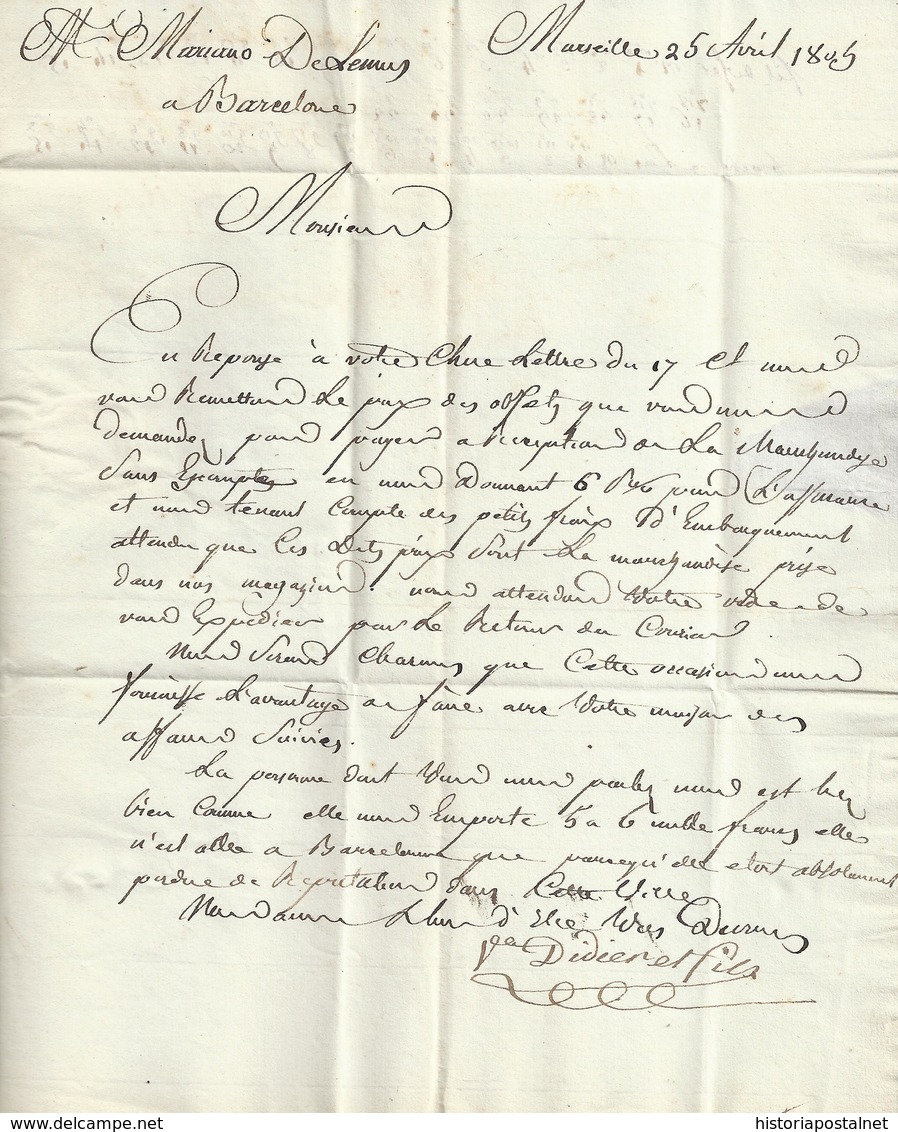 Mr. Mariano DeLemus Marseille 25 Avril 1805
a Barcelone
Monsieur
En Reponse à votre Chere Lettre du 17 Ct nous
vous Remettons Le prix des objets que vous nous
demandez pour payer a Reception de La Marchandise
Sans Escompte en nous Donnant 6 P% pour L'assurance
et nous tenant Compte des petits fraix d'Embarquement
attendu que Ces Dits prix Sont La marchandise prise
dans nos magazins. nous attendons Votre ordre de
vous Expedier par Le Retour du Courier
Nous Serons Charmés que Cette occasion nous
fournisse L'avantage de faire avec Votre maison des
affaires Suivies.
La personne dont Vous nous parlez nous est tres
bien Connue elle nous Emporte 5 a 6 mille francs elle
n'est allée a Barcelonne que parcequ'elle etoit absolument
perdue de Reputation dans Cette Ville
Nous avons L'honr d'Etre Vos Devoues
Ve Didier et fils
historiapostalnet